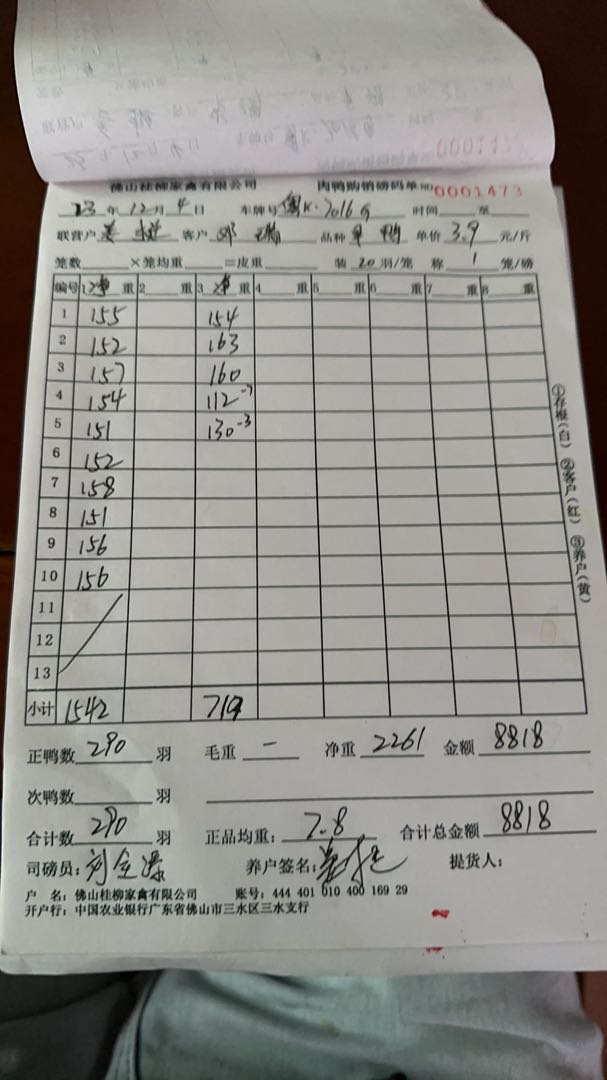 佛山桂柳家禽有限公司 肉鸭购销磅码单 NO 0001473
23年12月4日 车牌号 粤K·7016G 时间 至
联营户 客户 邓 品种 单价 3.9 元/斤
笼数 ×笼均重 =皮重 装 20 羽/笼 称 1 笼/磅
编号 1 净 重 2 重 3 净 重 4 重 5 重 6 重 7 重 8 重
1 155 154
2 152 163
3 157 160
4 154 112-7
5 151 130-3
6 152
7 158
8 151
9 156
10 156
11
12
13
小计 1542 719
正鸭数 290 羽 毛重 — 净重 2261 金额 8818
次鸭数 羽
合计数 290 羽 正品均重: 7.8 合计总金额 8818
司磅员: 刘 养户签名: 提货人:
户 名: 佛山桂柳家禽有限公司 账号: 444 401 010 400 169 29
开户行: 中国农业银行广东省佛山市三水区三水支行
①存根(白) ②客户(红) ③养户(黄)